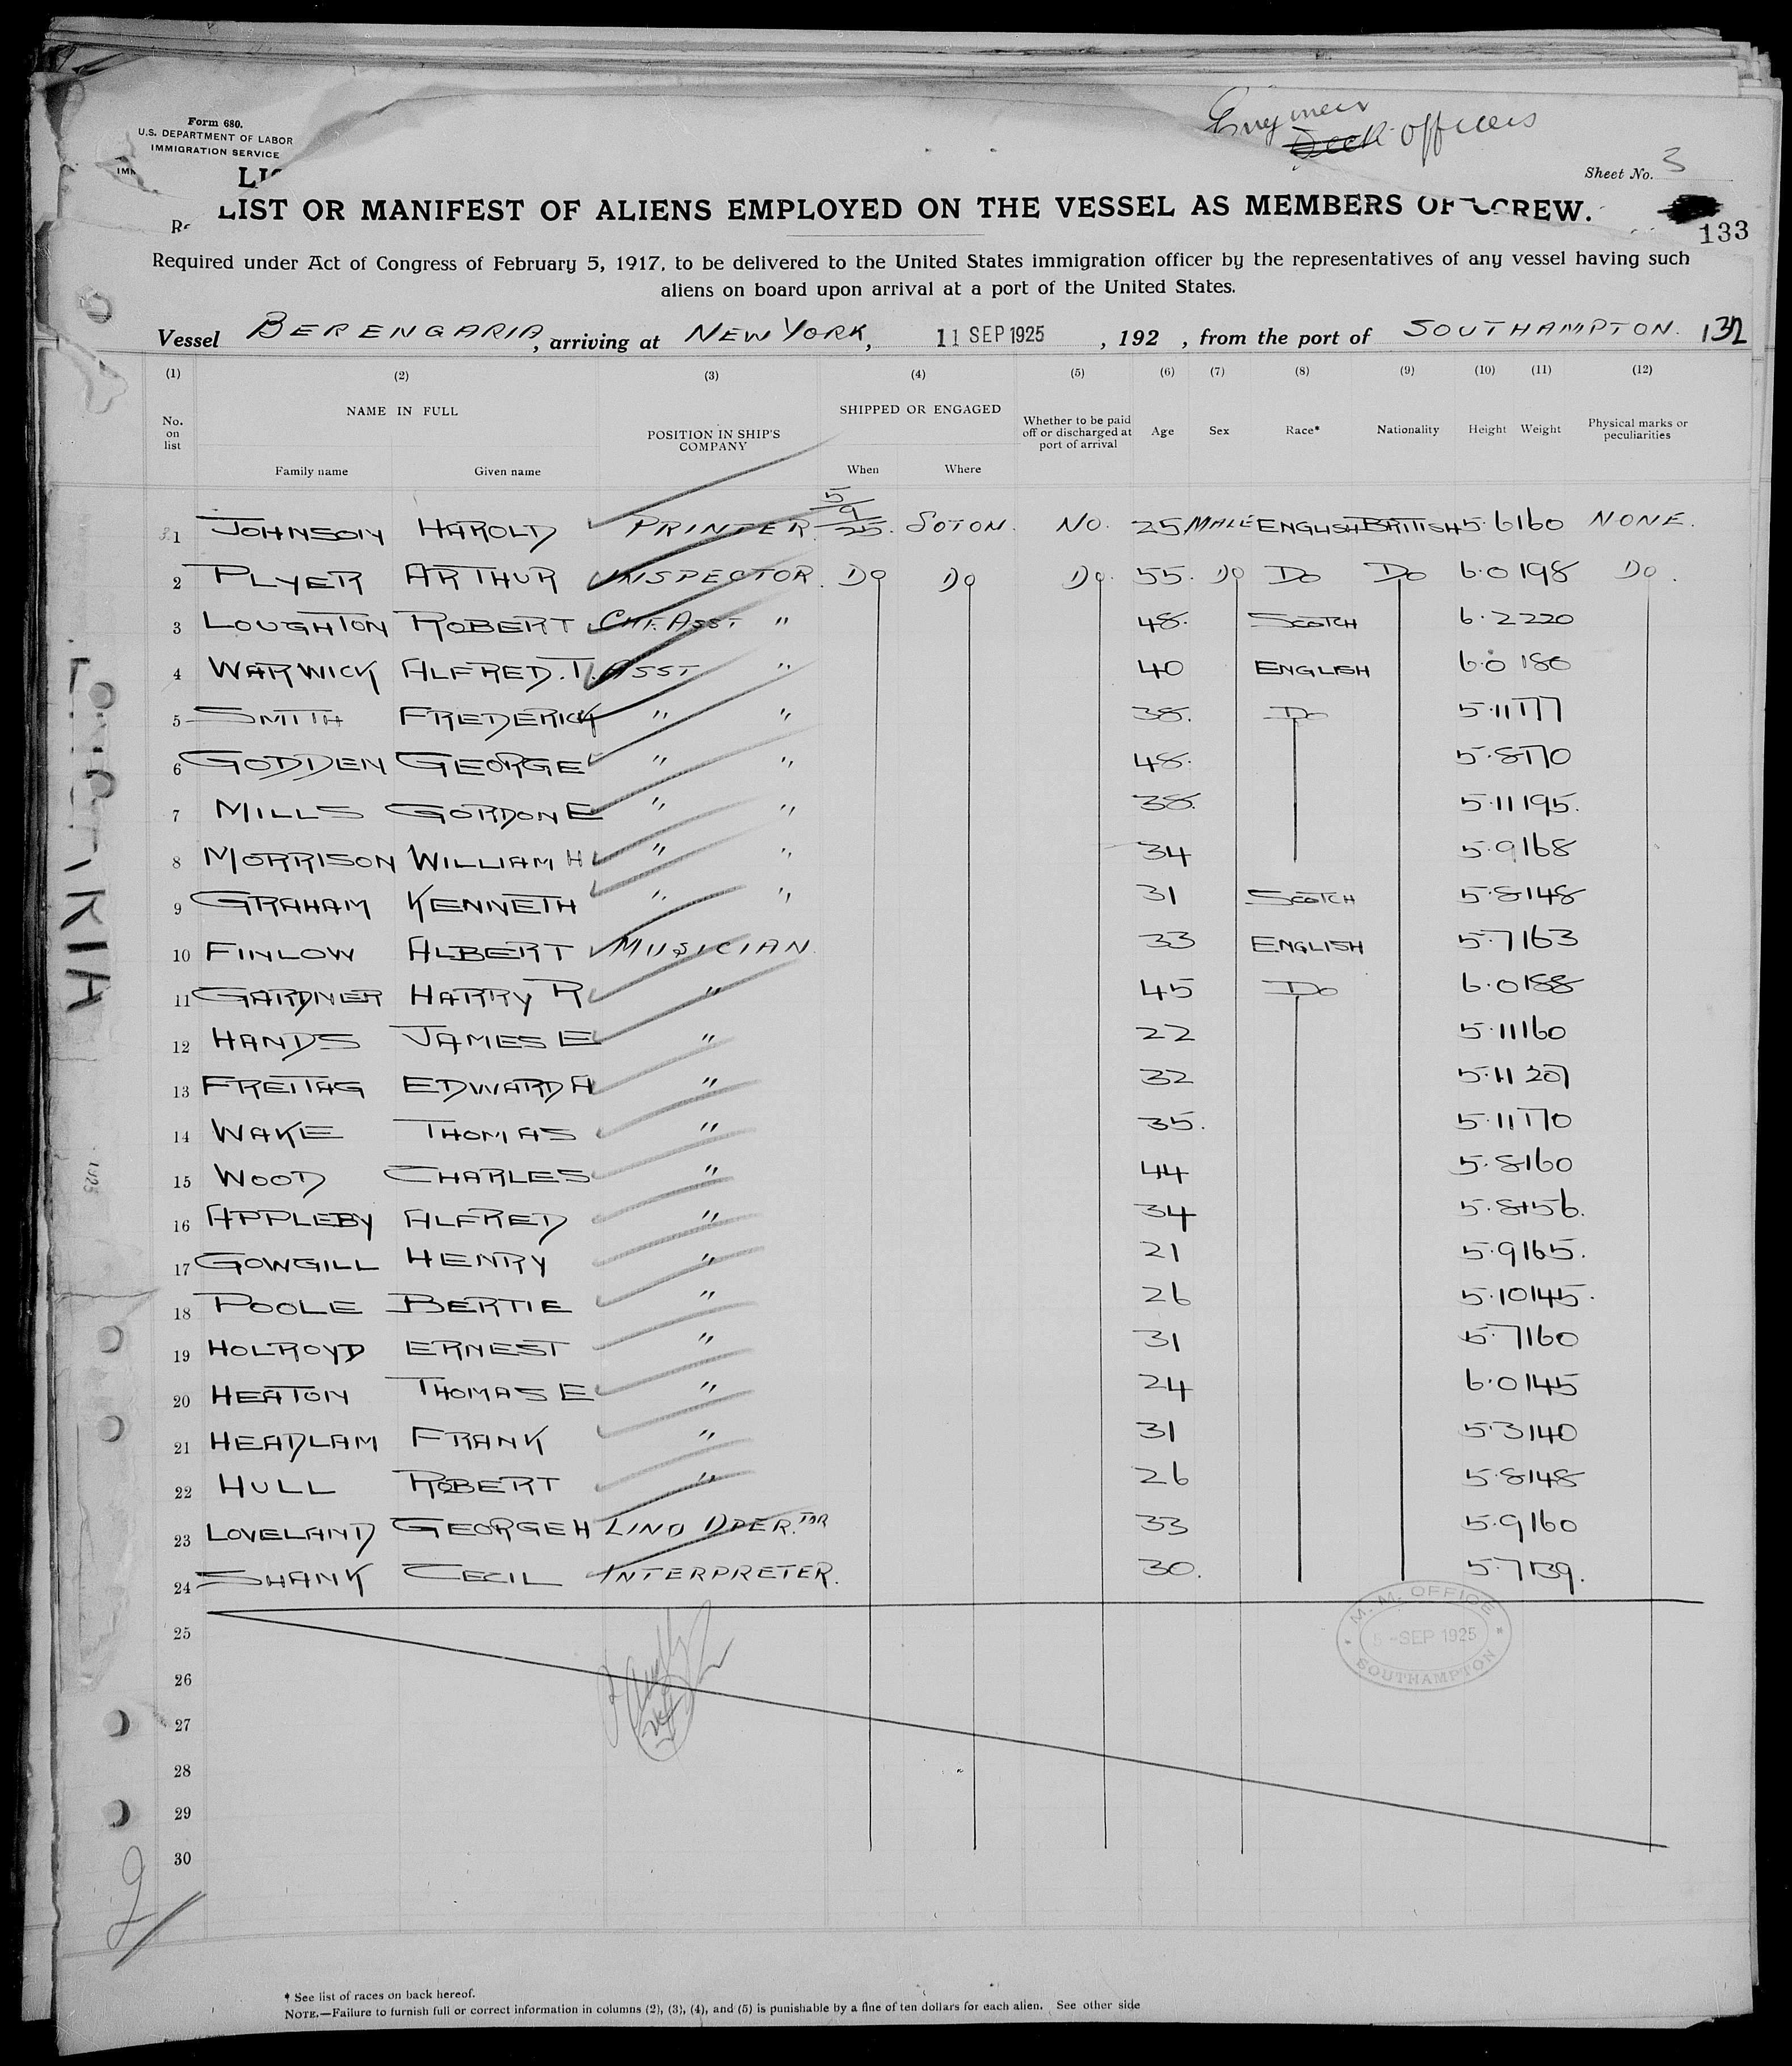 Engineer
Deck officers
Form 680.
U.S. DEPARTMENT OF LABOR
IMMIGRATION SERVICE
Sheet No. 3
LIST OR MANIFEST OF ALIENS EMPLOYED ON THE VESSEL AS MEMBERS OF CREW.
133
Required under Act of Congress of February 5, 1917, to be delivered to the United States immigration officer by the representatives of any vessel having such
aliens on board upon arrival at a port of the United States.
Vessel BERENGARIA, arriving at NEW YORK, 11 SEP 1925, 192 , from the port of SOUTHAMPTON. 132
(1) (2) (3) (4) (5) (6) (7) (8) (9) (10) (11) (12)
No. on list NAME IN FULL Family name Given name POSITION IN SHIP'S COMPANY SHIPPED OR ENGAGED When Where Whether to be paid off or discharged at port of arrival Age Sex Race* Nationality Height Weight Physical marks or peculiarities
1 JOHNSON HAROLD PRINTER. 5/9/25. SOTON. NO. 25 MALE ENGLISH BRITISH 5.6 160 NONE.
2 PLYER ARTHUR INSPECTOR. DO DO DO. 55. DO DO DO 6.0 198 DO.
3 LOUGHTON ROBERT CHF. ASST " 48. SCOTCH 6.2 220
4 WARWICK ALFRED.T. ASST " 40 ENGLISH 6.0 180
5 SMITH FREDERICK " " 38. DO 5.11 177
6 GODDEN GEORGE " " 48. 5.8 170
7 MILLS GORDON E " " 38. 5.11 195.
8 MORRISON WILLIAM H " " 34 5.9 168
9 GRAHAM KENNETH " " 31 SCOTCH 5.8 148
10 FINLOW ALBERT MUSICIAN. 33 ENGLISH 5.7 163
11 GARDNER HARRY R " 45 DO 6.0 188
12 HANDS JAMES E " 22 5.11 160
13 FREITAG EDWARD A " 32 5.11 207
14 WAKE THOMAS " 35. 5.11 170
15 WOOD CHARLES " 44 5.8 160
16 APPLEBY ALFRED " 34 5.8 156.
17 GOWGILL HENRY " 21 5.9 165.
18 POOLE BERTIE " 26 5.10 145.
19 HOLROYD ERNEST " 31 5.7 160
20 HEATON THOMAS E " 24 6.0 145
21 HEADLAM FRANK " 31 5.3 140
22 HULL ROBERT " 26 5.8 148
23 LOVELAND GEORGE H LINO OPER.TOR 33 5.9 160
24 SHANK CECIL INTERPRETER. 30. 5.7 139.
25
26
27
28
29
30
M. M. OFFICE
5 - SEP 1925
SOUTHAMPTON
* See list of races on back hereof.
NOTE.—Failure to furnish full or correct information in columns (2), (3), (4), and (5) is punishable by a fine of ten dollars for each alien. See other side